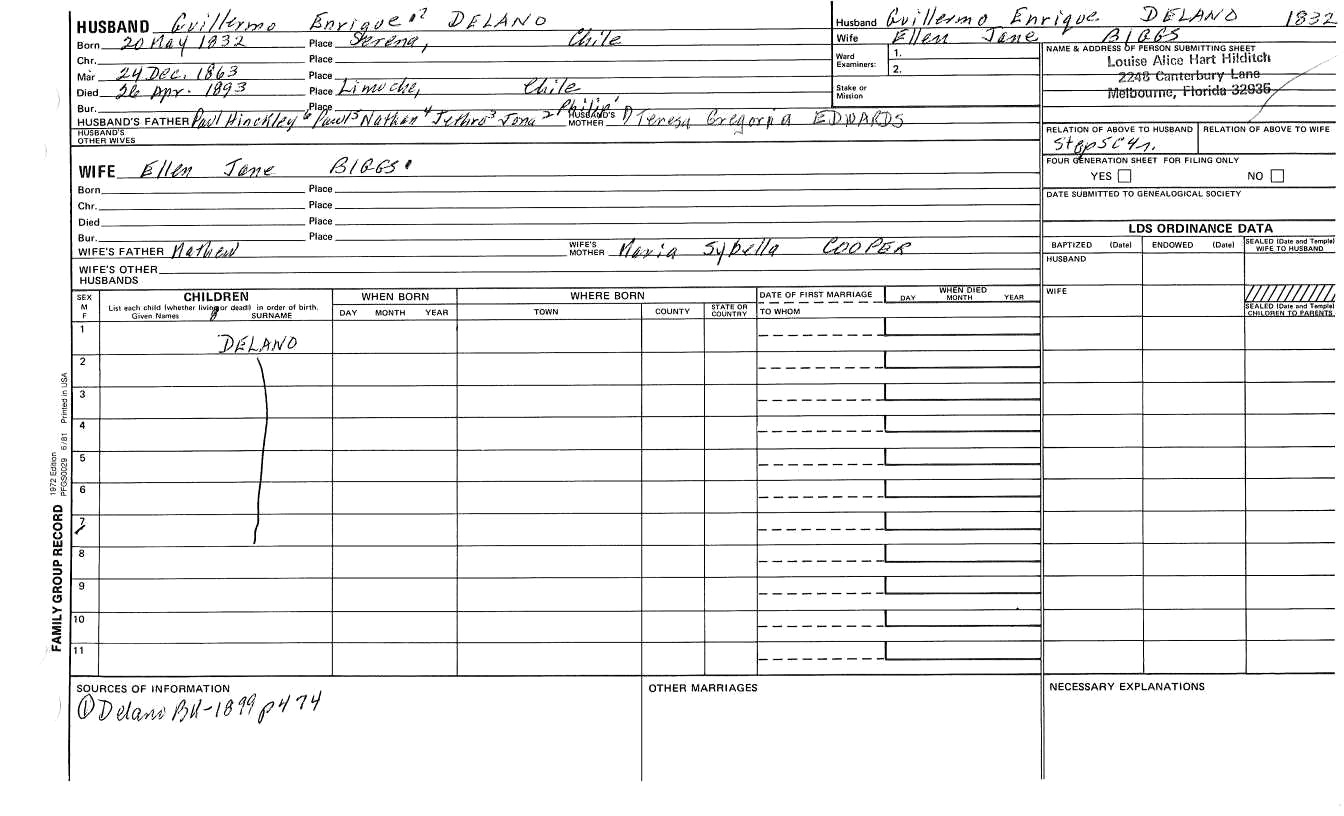 HUSBAND Guillermo Enrique DELANO
Born 20 May 1832 Place Serena, Chile
Chr. Place
Mar 24 Dec. 1863 Place
Died 26 Apr. 1893 Place Limoche, Chile
Bur. Place
HUSBAND'S FATHER Paul Hinckley 6 Paul 5 Nathan 4 Jethro 3 Jona 2 Philip 1 HUSBAND'S MOTHER Teresa Gregoria EDWARDS
HUSBAND'S OTHER WIVES
WIFE Ellen Jane BIGGS
Born Place
Chr. Place
Died Place
Bur. Place
WIFE'S FATHER Mathew WIFE'S MOTHER Maria Sybella COOPER
WIFE'S OTHER HUSBANDS
Husband Guillermo Enrique DELANO 1832
Wife Ellen Jane BIGGS
Ward Examiners: 1.
2.
Stake or Mission
NAME & ADDRESS OF PERSON SUBMITTING SHEET
Louise Alice Hart Hilditch
2248 Canterbury Lane
Melbourne, Florida 32935
RELATION OF ABOVE TO HUSBAND RELATION OF ABOVE TO WIFE
FOUR GENERATION SHEET FOR FILING ONLY
YES NO
DATE SUBMITTED TO GENEALOGICAL SOCIETY
LDS ORDINANCE DATA
BAPTIZED (Date) ENDOWED (Date) SEALED (Date and Temple) WIFE TO HUSBAND
HUSBAND
WIFE
SEALED (Date and Temple) CHILDREN TO PARENTS
SEX M F CHILDREN WHEN BORN WHERE BORN DATE OF FIRST MARRIAGE WHEN DIED
List each child (whether living or dead) in order of birth.
Given Names SURNAME DAY MONTH YEAR TOWN COUNTY STATE OR COUNTRY TO WHOM DAY MONTH YEAR
1 DELANO
2
3
4
5
6
7
8
9
10
11
FAMILY GROUP RECORD 1972 Edition PFGS0029 6/81 Printed in USA
SOURCES OF INFORMATION OTHER MARRIAGES NECESSARY EXPLANATIONS
① Delano BK-1899 p474